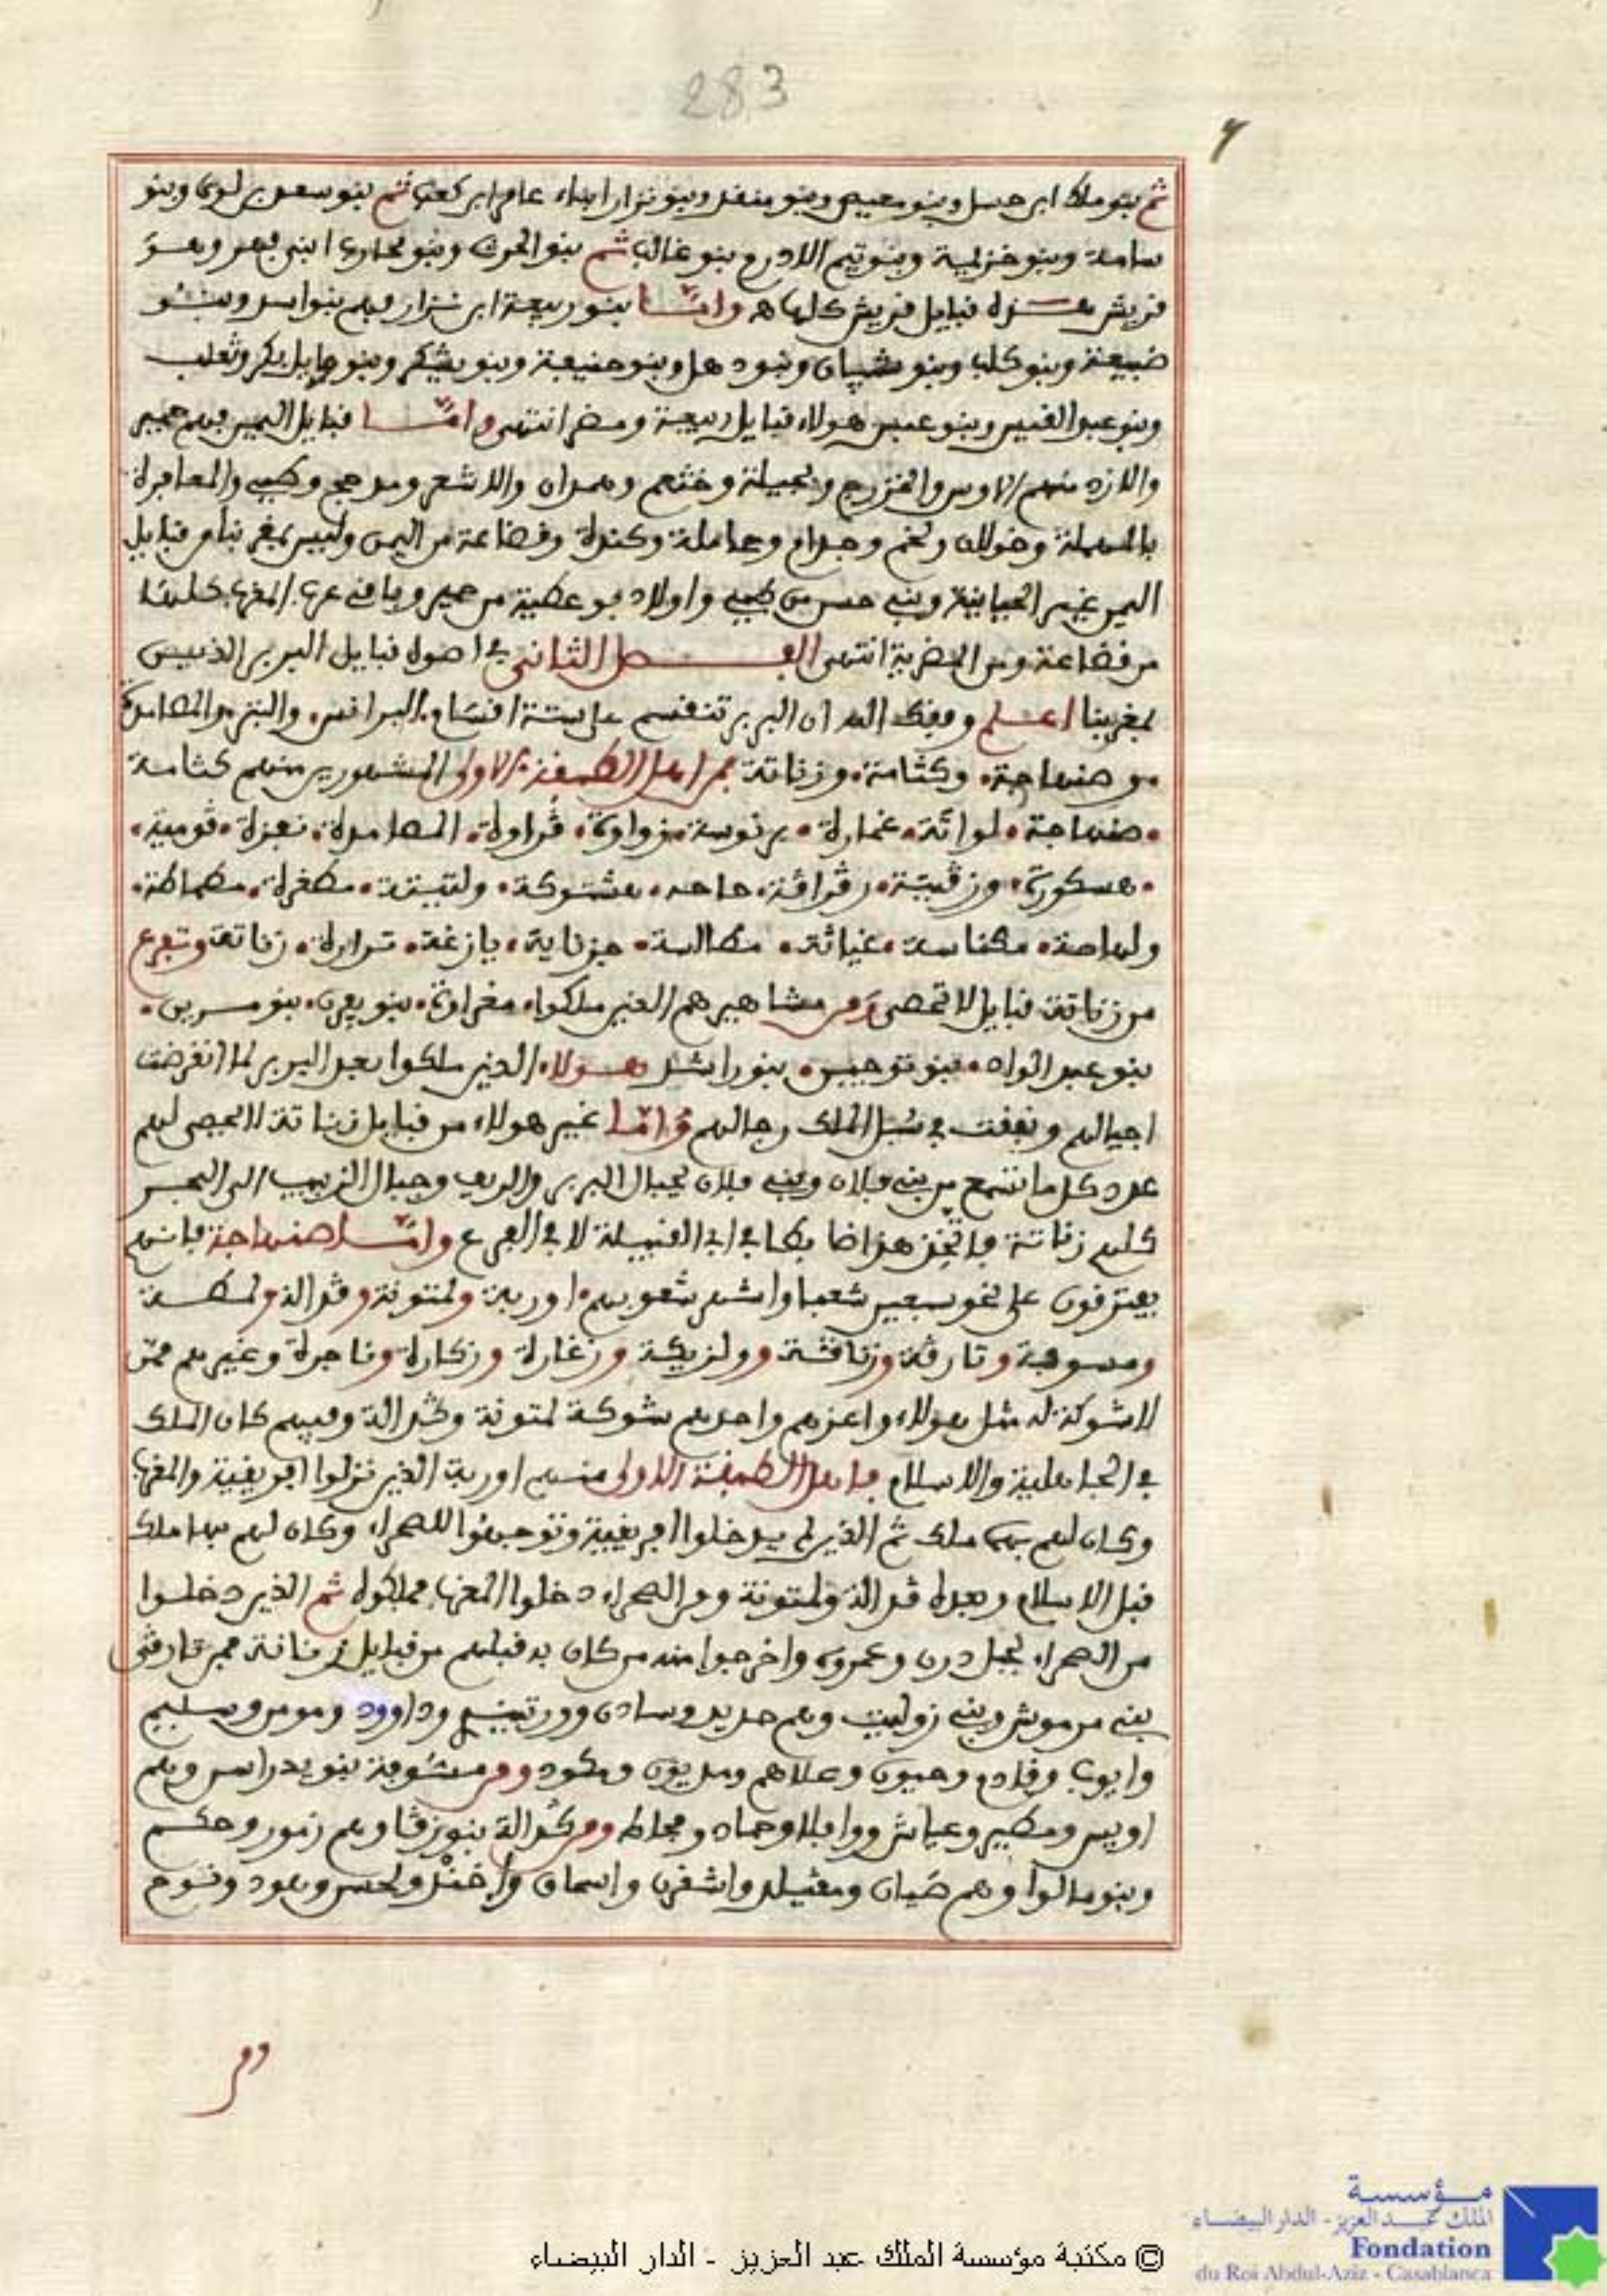 283
ثم بنو ملك ابن حسل وبنو معيص وبنو منقذ وبنو نزار ابناء عامر ابن كعب ثم بنو سعد بن لوي وبنو
سامة وبنو خزيمة وبنو تيم الادرم وبنو غالب ثم بنو الحرث وبنو محارب ابني فهر وهو
قريش هذه قبايل قريش كلها ه واما بنو ربيعة ابن نزار فهم بنو اسد وبنو
ضبيعة وبنو كلب وبنو شيبان وبنو دهل وبنو حنيفة وبنو يشكر وبنو وايل بكر وتغلب
وبنو عبد القيس وبنو عبس هولاء قبايل ربيعة ومضر انتهى واما قبايل اليمن فهم حمير
والازد منهم الاوس والخزرج وبجيلة وخثعم وهمدان والاشعر ومدحج وطيء والمعافرة
بالمهملة وخولان ولخم وجدام وعاملة وكندة وقضاعة من اليمن وليس بمغربنا من قبايل
اليمن غير الحيانية وبني حسن من طيء واولاد بو عطية من حمير وباقي عرب المغرب كلها
من قضاعة ومن المضرية انتهى الفصل الثاني في اصول قبايل البربر الذين
بمغربنا اعلم وفقك الله ان البربر تنقسم على ستة اقسام البرانس والبتر والمصامدة
وصنهاجة وكتامة وزناتة فمن اهل الطبقة الاولى المشهورين منهم كتامة
صنهاجة لواتة غمارة برنوسة زواوة ڭراولة المصامدة نفزة ڭومية
هسكورة ورڭيتة رڭراڭة حاحه هشتوكة ولتيتة مطغرة مطماطة
ولهاصة مكناسة غياثة مطالسة جزناية يازغة ترارة زناتة وتفرع
من زناتة قبايل لا تحصى ومن مشاهيرهم الذين ملكوا مغراوة بنو يفرن بنو مرين
بنو عبد الواد بنو توجين بنو راشد هولاء الذين ملكوا بعد البربر لما انقرضت
اجيالهم ونفقت في سبل الملك رجالهم واما غير هولاء من قبايل زناتة لا يحصى لهم
عدد كل ما تسمع من بني فلان وبني فلان بجبال البربر والريف وجبال الزبيب الى البحر
كلهم زناتة فاتخذ هذا ضابطا في اب القبيلة لا في الفرع واما صنهاجة فانهم
يفترقون على نحو سبعين شعبا واشهر شعوبهم اوربة ولمتونة وڭدالة ولمطة
ومسوفة وتارڭة وزنافثة وولزيكة وزغارة وزكارة وناجرة وغيرهم ممن
لا شوكة له مثل هولاء واعزهم واحدهم شوكة لمتونة وڭدالة وفيهم كان الملك
في الجاهلية والاسلام فاهل الطبقة الاولى منهم اوربة الذين نزلوا افريقية والمغرب
وكان لهم بهما ملك ثم الذين لم يدخلوا افريقية وتوجهوا للصحراء وكان لهم بها ملك
قبل الاسلام وبعده ڭدالة ولمتونة ومن الصحراء دخلوا المغرب فملكوه ثم الذين دخلوا
من الصحراء لجبل درن وعمروه واخرجوا منه من كان به قبلهم من قبايل زناتة فمن تارڭى
بني مرموش وبني زوليت وهم حديد وسادن وورتينسم وداوود ومومر وسليم
وايوب وفادم وحيون وعلاهم ومديون ومكود ومن مسوفة بنو يدراسن وهم
اويس ومطير وعياش ووافلا وحماد ومجاط ومن ڭدالة بنو زڭا وهم زمور وحكم
وبنو مالوا وهم ضيان ومغيلد واشقرن واسماق واخند ولحسن وهود ونوح
ومن
© مكتبة مؤسسة الملك عبد العزيز - الدار البيضاء
مؤسسة
الملك عبد العزيز - الدار البيضاء
Fondation
du Roi Abdul-Aziz - Casablanca